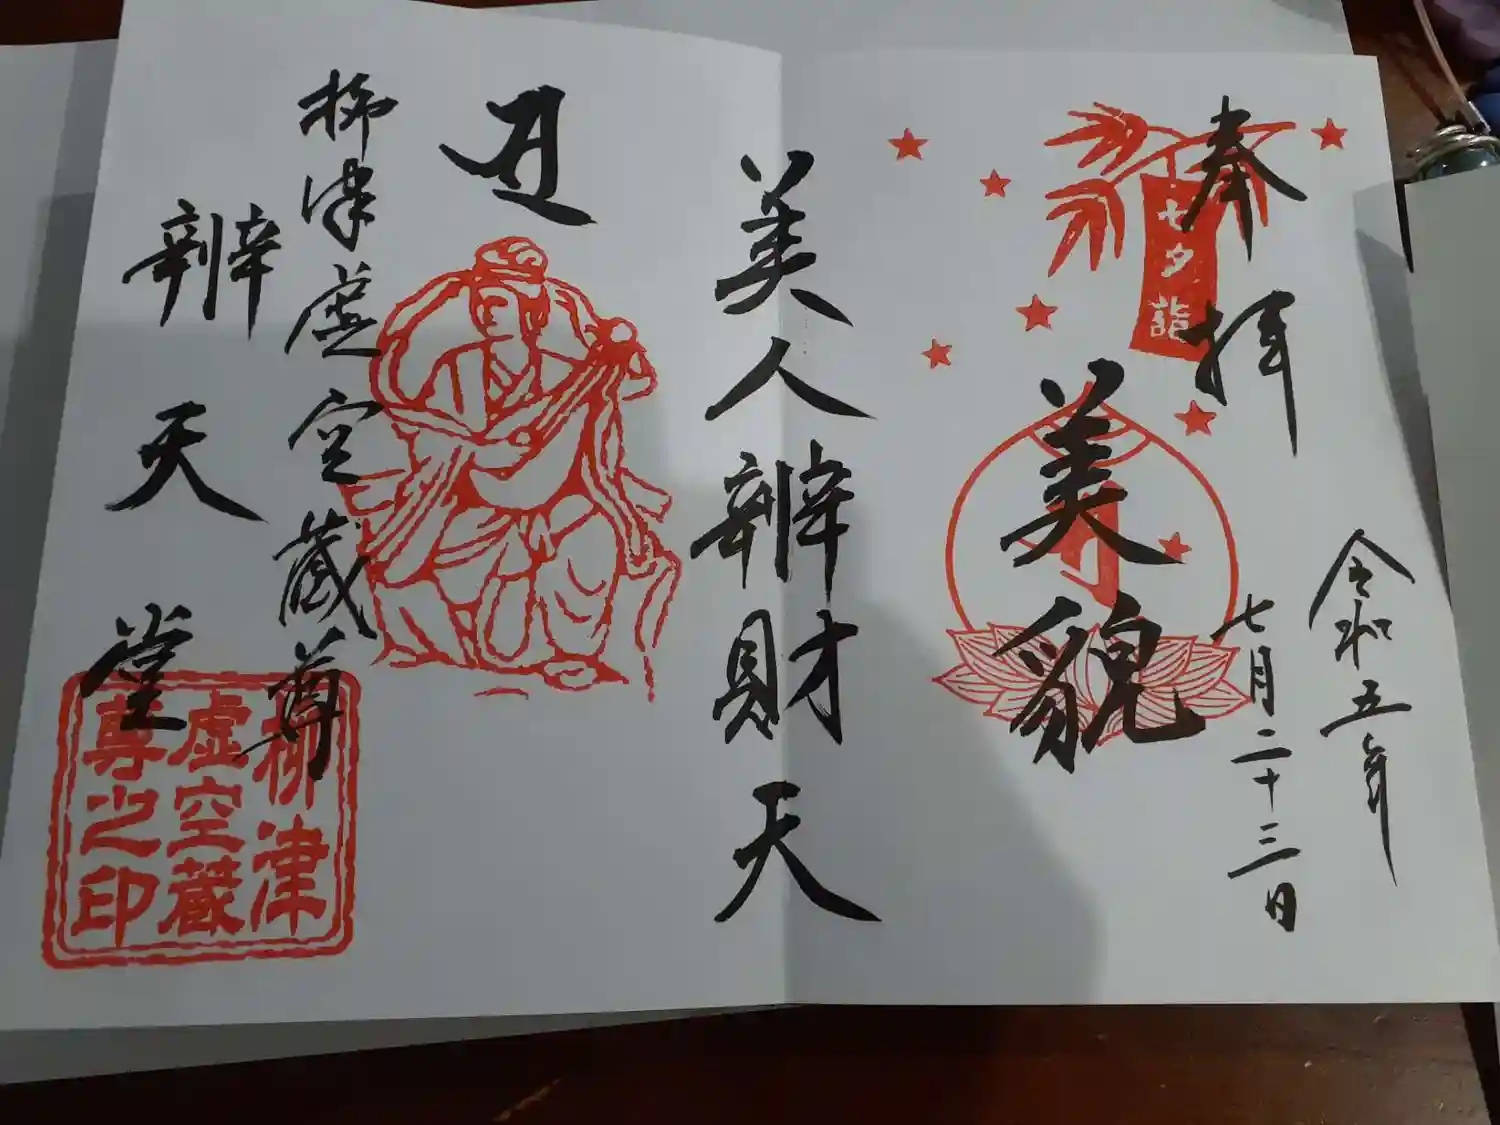 奉拝
令和五年
七月二十三日
七夕詣
美貌
美人辨財天
柳津虚空蔵尊
辨天堂
柳津
虚空蔵
尊之印